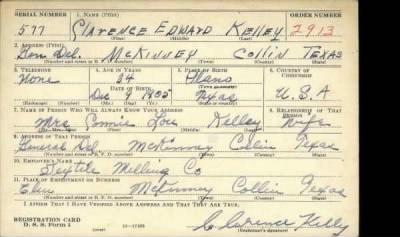 SERIAL NUMBER 1. NAME (Print) ORDER NUMBER
577 CLARENCE EDWARD KELLEY 2913
(First) (Middle) (Last)
2. ADDRESS (Print)
Gen Del. McKINNEY COLLIN TEXAS
(Number and street or R. F. D. number) (Town) (County) (State)
3. TELEPHONE 4. AGE IN YEARS 5. PLACE OF BIRTH 6. COUNTRY OF CITIZENSHIP
None 34 Plano
DATE OF BIRTH
Dec Texas U.S.A
(Exchange) (Number) (Mo.) (Day) (Yr.) (State or country)
7. NAME OF PERSON WHO WILL ALWAYS KNOW YOUR ADDRESS 8. RELATIONSHIP OF THAT PERSON
Mrs Connie Lou Kelley Wife
(Mr., Mrs., Miss) (First) (Middle) (Last)
9. ADDRESS OF THAT PERSON
General Del McKinney Collin Texas
(Number and street or R. F. D. number) (Town) (County) (State)
10. EMPLOYER'S NAME
Textile Milling Co
11. PLACE OF EMPLOYMENT OR BUSINESS
Elm McKinney Collin Texas
(Number and street or R. F. D. number) (Town) (County) (State)
I AFFIRM THAT I HAVE VERIFIED ABOVE ANSWERS AND THAT THEY ARE TRUE.
REGISTRATION CARD
D. S. S. Form 1 (over) Clarence Kelly
(Registrant's signature)